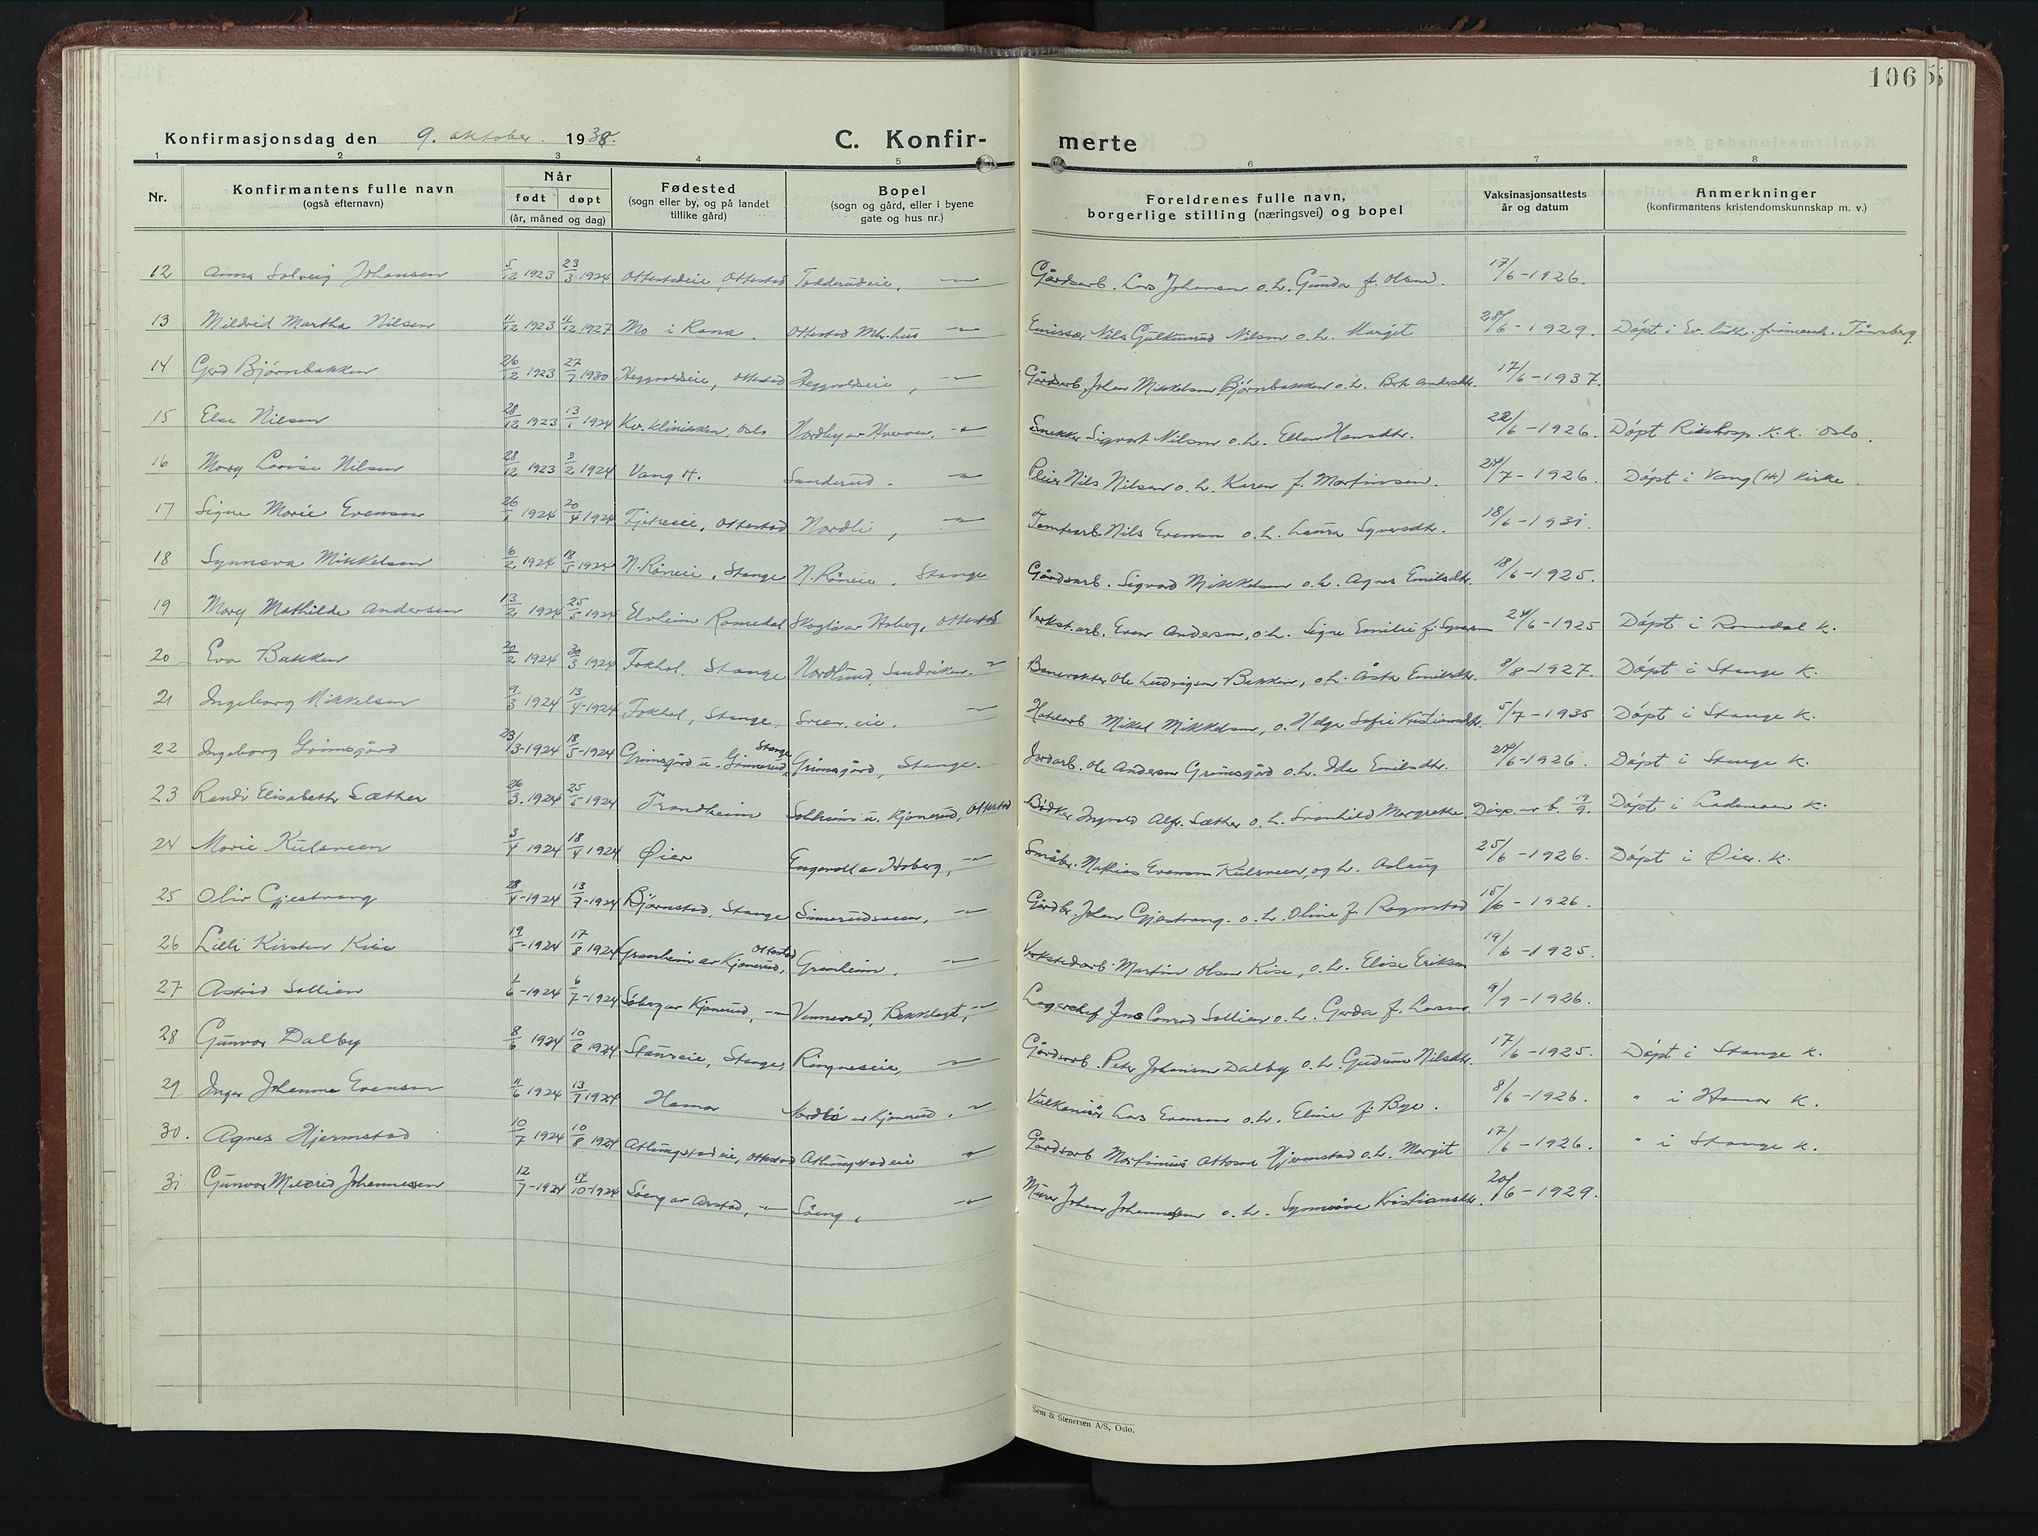 106
Konfirmasjonsdag den 9. oktober. 1938.
C. Konfirmerte
1 2 3 4 5 6 7 8
Nr. Konfirmantens fulle navn (også efternavn) Når født døpt (år, måned og dag) Fødested (sogn eller by, og på landet tillike gård) Bopel (sogn og gård, eller i byene gate og hus nr.) Foreldrenes fulle navn, borgerlige stilling (næringsvei) og bopel Vaksinasjonsattests år og datum Anmerkninger (konfirmantens kristendomskunnskap m. v.)
12 Anna Solveig Johansen 5/12 1923 23/3 1924 Ottestadeie, Ottestad Todderudeie, -"- Gårdsarb. Lars Johansen o.h. Gunda f. Olsen. 17/6-1926.
13 Mildrid Martha Nilsen 11/12 1923 11/12 1927 Mo i Rana. Ottestad Mh.hus -"- Emissær Nils Nilsen o.h. Margit 28/6-1929. Døpt i Ev. luth. frimenh. Tønsberg
14 Gerd Bjørnbakken 26/12 1923 27/7 1930 Heggvoldeie, Ottestad Heggvoldeie, -"- Gårdsarb. Johan Mikkelsen Bjørnbakken o.h. Andersdtr. 17/6-1937.
15 Else Nilsen 28/12 1923 13/1 1924 Kv.klinikken, Oslo Nordby av -"- Snekker Sigvart Nilsen o.h. Ellen Hansdtr. 22/6-1926. Døpt Rikshosp. K.K. Oslo.
16 Mary Lovise Nilsen 28/12 1923 3/2 1924 Vang H. Sanderud. -"- Pleier Nils Nilsen o.h. Karen f. Martinsen. 24/7-1926. Døpt i Vang (H) Kirke.
17 Signe Marie Evensen 26/1 1924 20/4 1924 Ottestad Nordli, -"- Tomtearb. Nils Evensen o.h. Laura Syversdtr. 18/6-1931.
18 Synnøva Mikkelsen 6/2 1924 18/5 1924 N. Røneie, Stange N. Røneie, Stange Gårdsarb. Sigvard Mikkelsen o.h. Agnes Emilsdtr. 18/6-1925.
19 Mary Mathilde Andersen 13/2 1924 25/5 1924 Elvheim Romedal Skogly av Hoberg, Ottestad Verkst.arb. Even Andersen, o.h. Signe Emilie f. Syversen 24/6-1925 Døpt i Romedal K.
20 Eva Bakken 20/2 1924 30/3 1924 Fokhol, Stange Nordlund, Sandviken. -"- Banevokter Ole Ludvigsen Bakken, o.h. Åsta Emilsdtr. 8/8-1927. Døpt i Stange K.
21 Ingeborg Mikkelsen 9/3 1924 13/4-1924 Fokhol, Stange, Sveen eie. -"- Hotelarb Mikal Mikkelsen, o. Helga Sofie Kristiansdtr. 5/7-1935 Døpt i Stange K.
22 Ingeborg Grimsgård 23/3-1924 18/5-1924 Grimsgård u. Stange Grimsgård, Stange. Jordarb. Ole Andersen Grimsgård o.h. Ida Emilsdtr. 24/6-1926. Døpt i Stange K.
23 Randi Elisabeth Sæther 26/3. 1924 25/5-1924 Trondheim Solheim u. Kjonerud, Ottestad Bødker Ingvald Alfr. Sæther o.h. Svanhild Margrethe Disp. av b. 19/9. Døpt i Lademoen K.
24 Marie Kulsveen 3/4 1924 18/4 1924 Øier Engevoll av Hoberg, -"- Småbr. Mathias Evensen Kulsveen, og h. Aslaug 25/6-1926. Døpt i Øier. K.
25 Oliv Gjestvang 28/4-1924 13/7-1924 Bjørnstad, Stange Simerudsveen, -"- Gårdbr. Johan Gjestvang. o.h. Oline f. Rognstad 15/6-1926.
26 Lilli Kirsten Kise 19/5-1924 17/8 1924 Granheim av Kjonerud, Ottestad Granheim. -"- Verkstedarb. Martin Olsen Kise, o.h. Elise Eriksen 19/6-1925.
27 Astrid Sollien 1/6-1924 6/7-1924 Søberg av Kjonerud, -"- Vennevold, Bekkelaget, -"- Lagerchef Jens Conrad Sollien o.h. Gerda f. Larsen. 9/9-1926.
28 Gunvor Dalby 8/6 1924 10/8 1924 Staureie, Stange, Ringneseie, -"- Gårdsarb. Peter Johansen Dalby o.h. Gudrun Nilsdtr. 17/6-1925. Døpt i Stange K.
29 Inger Johanne Evensen 11/6 1924 13/7 1924 Hamar Nordli av Kjonerud. -"- Vulkanisør Lars Evensen o.h. Eline f. Bye. 8/6-1926. " i Hamar K.
30. Agnes Hjermstad 10/7 1924 10/8 1924 Atlungstadeie, Ottestad Atlungstadeie -"- Gårdsarb Martinius Ottosen Hjermstad o.h. Margit 17/6-1926. " i Stange K.
31 Gunvor Mildrid Johannessen 12/7-1924 17/10-1924 Søeng av Arstad, -"- Søeng, -"- Murer Johan Johannessen o.h. Synnøve Kristiansdtr. 20/6-1929.
Sem & Stenersen A/S, Oslo.